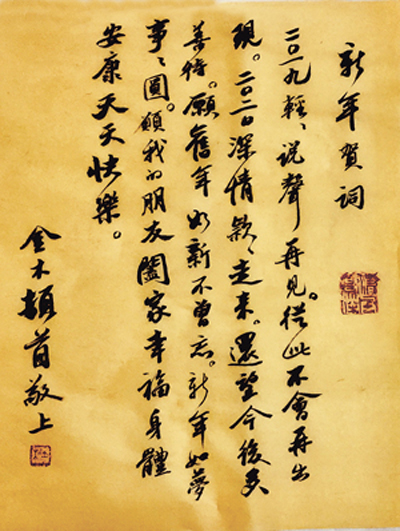 新年賀詞
二〇一九輕〻说聲再見。從此不會再出
現。二〇二〇深情款〻走来。還望今後多
善待。願舊年如新不曾忘。新年如夢
事〻圓。願我的朋友闔家幸福身體
安康天天快樂。
金木頓首敬上